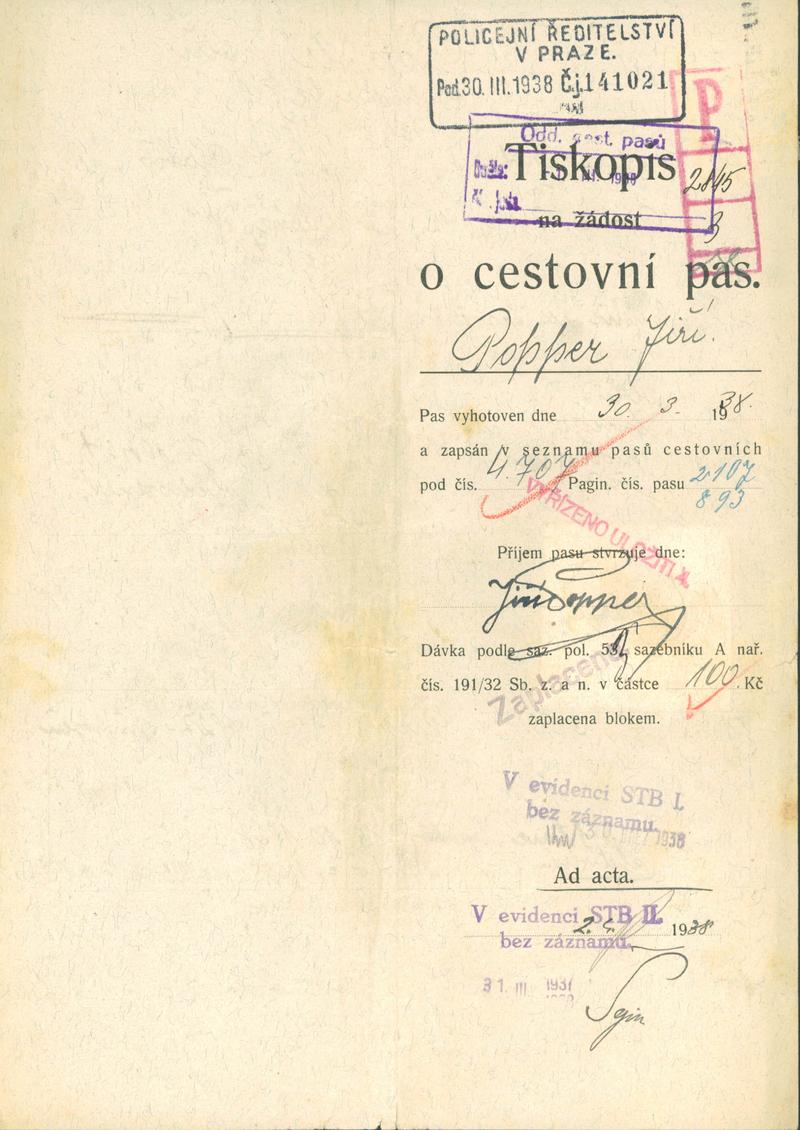 POLICEJNÍ ŘEDITELSTVÍ
V PRAZE.
Pod. 30. III. 1938 Č.j. 141021
P
Odd. cest. pasů
Tiskopis
2845
na žádost
3
o cestovní pas.
Popper Jiří.
Pas vyhotoven dne 30. 3. 1938.
a zapsán v seznamu pasů cestovních
pod čís. 4.707 Pagin. čís. pasu 2107
893
VYŘÍZENO ULOŽITI
Příjem pasu stvrzuje dne:
Jiří Popper
Dávka podle saz. pol. 53 sazebníku A nař.
čís. 191/32 Sb. z. a n. v částce 100 Kč
Zaplaceno
zaplacena blokem.
V evidenci STB I.
bez záznamu.
30. III. 1938
Ad acta.
V evidenci STB II.
2. 4. 1938
bez záznamu.
31. III. 1937